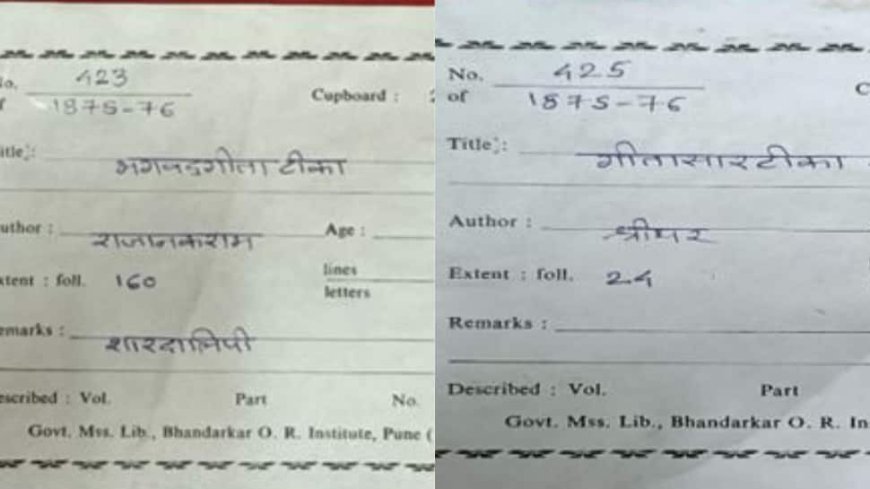 No. 423
of 1875-76
Cupboard :
Title : भगवद्गीता टीका
Author : राजानकराम
Age :
Extent : foll. 160
lines
letters
Remarks : शारदालिपी
Described : Vol. Part No.
Govt. Mss. Lib., Bhandarkar O. R. Institute, Pune (
No. 425
of 1875-76
C
Title : गीतासारटीका
Author : श्रीधर
Extent : foll. 24
Remarks :
Described : Vol. Part
Govt. Mss. Lib., Bhandarkar O. R. In